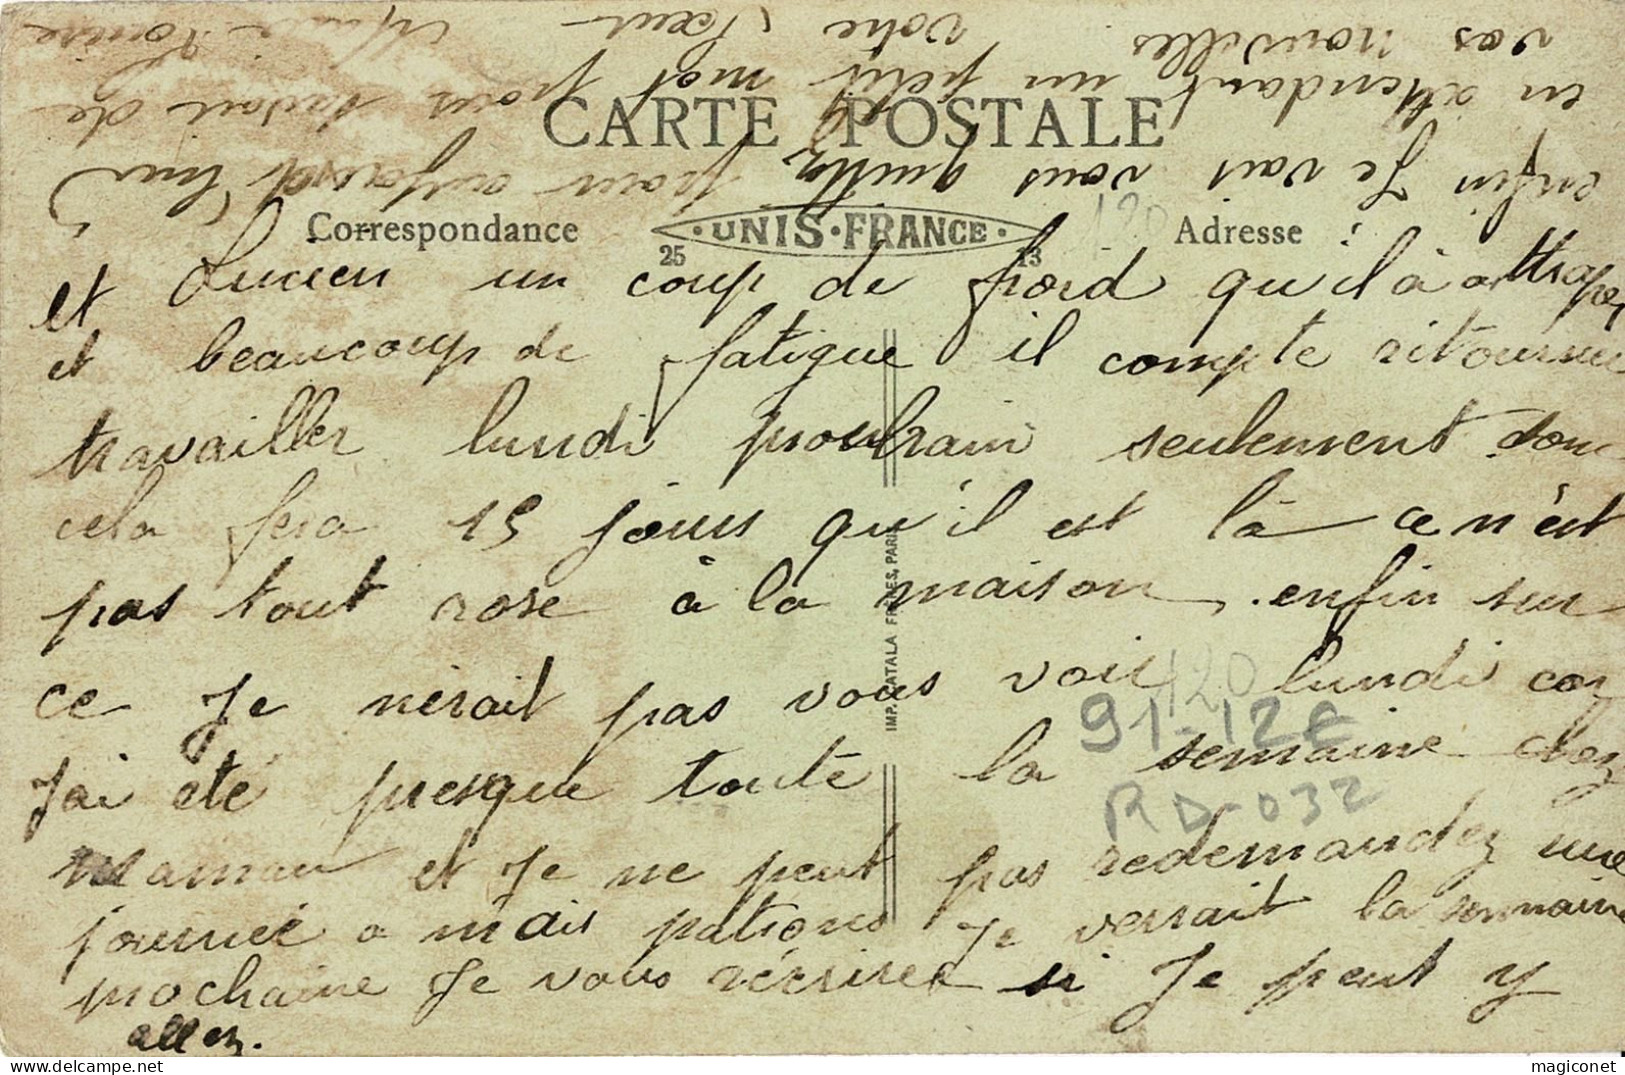 CARTE POSTALE
Correspondance
UNIS-FRANCE
25 13
Adresse
et Lucien un coup de froid qu'il à attraper
et beaucoup de fatigue il compte retourner
travailler lundi prochain seulement donc
cela fera 15 jours qu'il est là ce n'est
pas tout rose à la maison enfin sur
ce Je n'érait pas vous voir lundi car
J'ai été presque toute la semaine chez
maman et Je ne peut pas redemandez une
journée a mais patrons Je verrait la semaine
prochaine Je vous réécrirer si Je peut y
allez.
enfin Je vais vous quittez pour aujourd'hui
en attendant un petit mot pour savoir de
vos nouvelles votre Sœur
IMP. CATALA FRÈRES, PARIS
120
120
91-12€
RD-032
magiconet